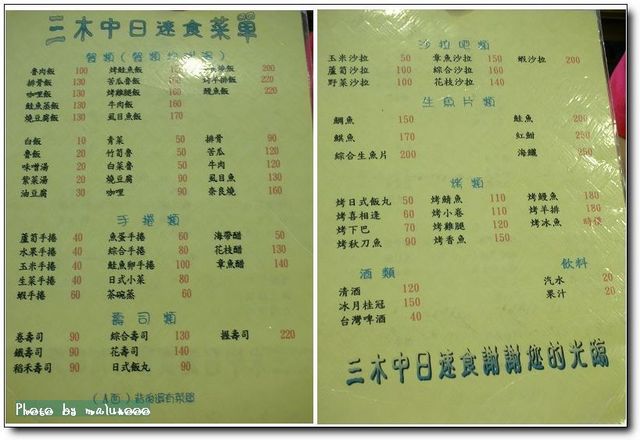 三木中日速食菜單
魯肉飯 100 烤鮭魚飯 160 200
排骨飯 130 苦瓜魯飯 150 烤羊排飯 220
咖哩飯 130 烤雞腿飯 160 鰻魚飯 220
鮭魚蒸飯 130 牛肉飯 160
燒豆腐飯 130 虱目魚飯 170
白飯 10 青菜 50 排骨 90
魯飯 20 竹筍魯 50 苦瓜 120
味噌湯 20 白菜魯 50 牛肉 120
紫菜湯 20 燒豆腐 90 虱目魚 130
油豆腐 30 咖哩 90 奈良燒 160
手捲類
蘆筍手捲 40 魚蛋手捲 60 海帶醋 50
水果手捲 40 綜合手捲 80 花枝醋 130
玉米手捲 40 鮭魚卵手捲 100 章魚醋 140
生菜手捲 40 日式小菜 80
蝦手捲 60 茶碗蒸 60
壽司類
卷壽司 90 綜合壽司 130 握壽司 220
鐵壽司 90 花壽司 140
稻禾壽司 90 日式飯丸 90
(A面)背後還有菜單
Photo by maluxooo
沙拉吧類
玉米沙拉 50 章魚沙拉 150 蝦沙拉 150
蘆筍沙拉 100 綜合沙拉 160
野菜沙拉 100 花枝沙拉 140
生魚片類
鯛魚 150 鮭魚 200
旗魚 170 紅魽 200
綜合生魚片 200 海鱺 250
烤類
烤日式飯丸 50 烤鯖魚 110 烤鰻魚 180
烤喜相逢 60 烤小卷 110 烤羊排 180
烤下巴 70 烤雞腿 120 烤冰魚 時價
烤秋刀魚 90 烤香魚 150
酒類 飲料
清酒 120 汽水 20
冰月桂冠 150 果汁 20
台灣啤酒 40
三木中日速食謝謝您的光臨